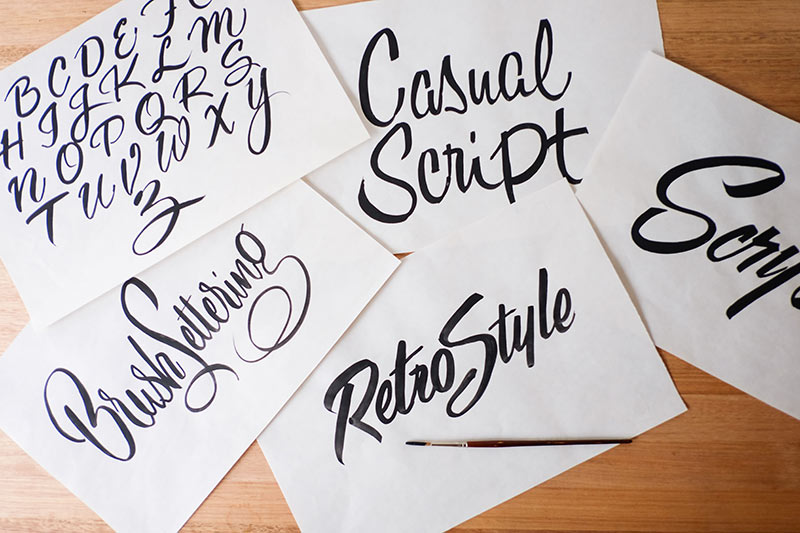 B C D E F
H I J K L M
N O P Q R S
T U V W X Y
Z
Casual
Script
Brush Lettering
Retro Style